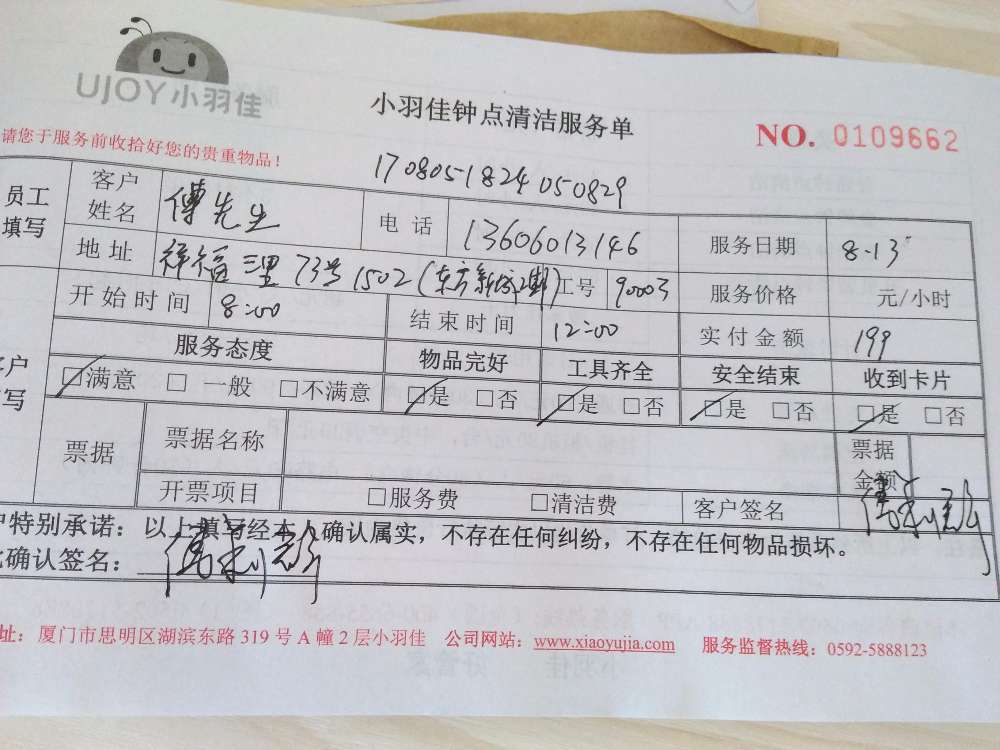 UJOY小羽佳
小羽佳钟点清洁服务单
NO. 0109662
请您于服务前收拾好您的贵重物品!
1708051824050829
员工填写 客户姓名 傅先生 电话 13606013146 服务日期 8.13
地址 祥福三里73号1502(东方新城二期) 工号 90003 服务价格 元/小时
开始时间 8:00 结束时间 12:00 实付金额 199
客户填写 服务态度 物品完好 工具齐全 安全结束 收到卡片
☑满意 □一般 □不满意 ☑是 □否 ☑是 □否 ☑是 □否 ☑是 □否
票据 票据名称 票据金额
开票项目 □服务费 □清洁费 客户签名
户特别承诺:以上填写经本人确认属实,不存在任何纠纷,不存在任何物品损坏。
确认签名:
址:厦门市思明区湖滨东路319号A幢2层小羽佳 公司网站:www.xiaoyujia.com 服务监督热线:0592-5888123